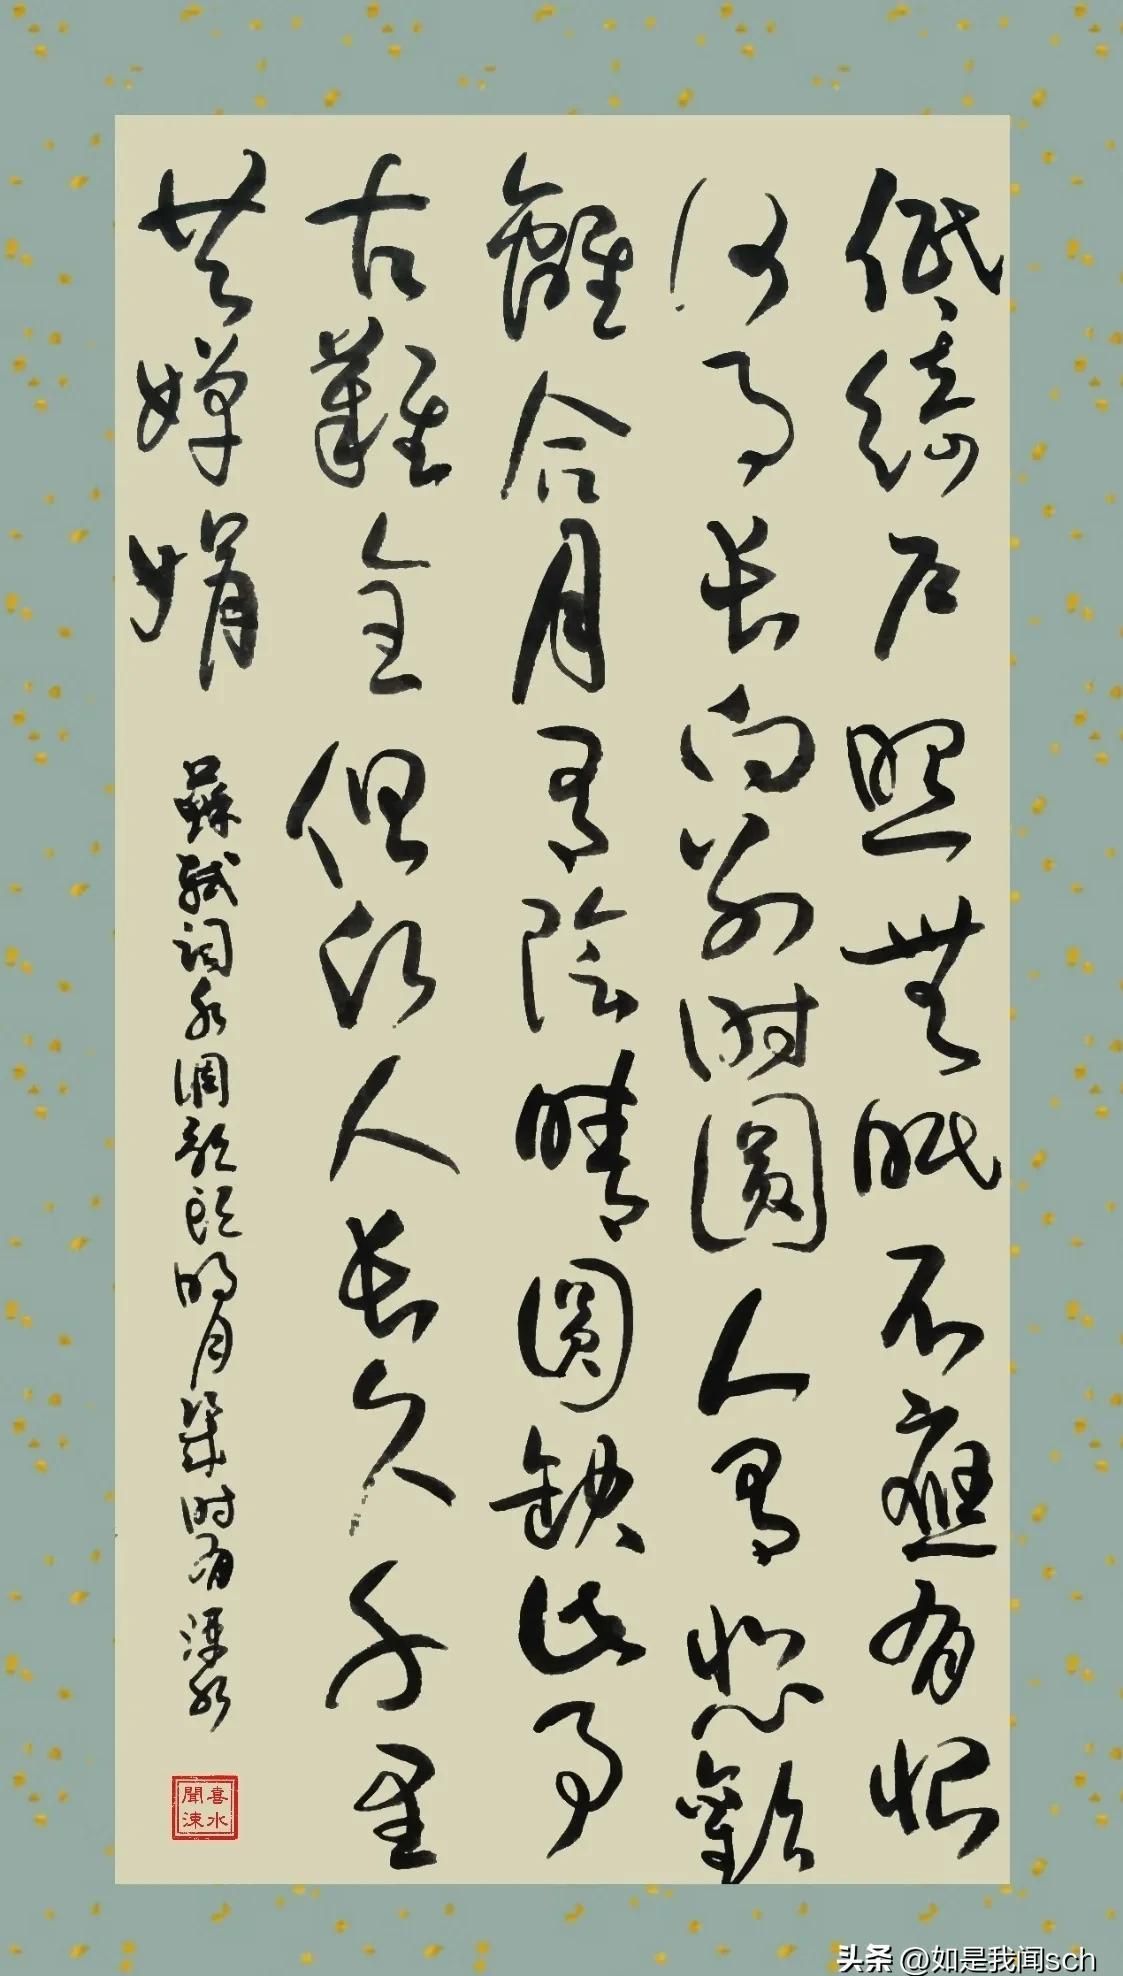 低绮户照無眠不應有恨
何事长向别时圆人有悲歡
離合月有陰晴圆缺此事
古難全但願人长久千里
共嬋娟
蘇軾詞水调歌頭明月幾时有涑水
喜水
聞涑
头条 @如是我闻sch